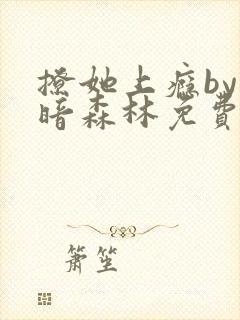 撩她上瘾by
暗森林免費
箫笙